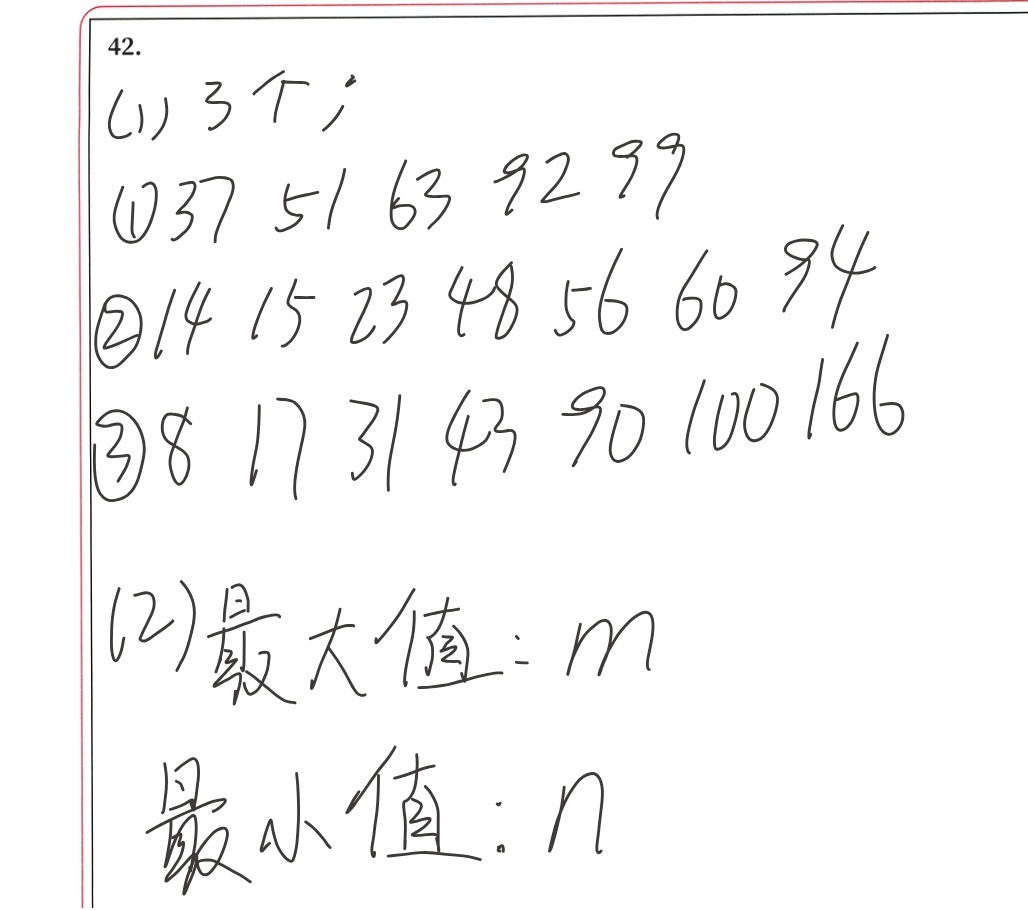 42.
(1) 3个;
① 37 51 63 92 99
② 14 15 23 48 56 60 94
③ 8 17 31 43 90 100 166
(2) 最大值: m
最小值: n